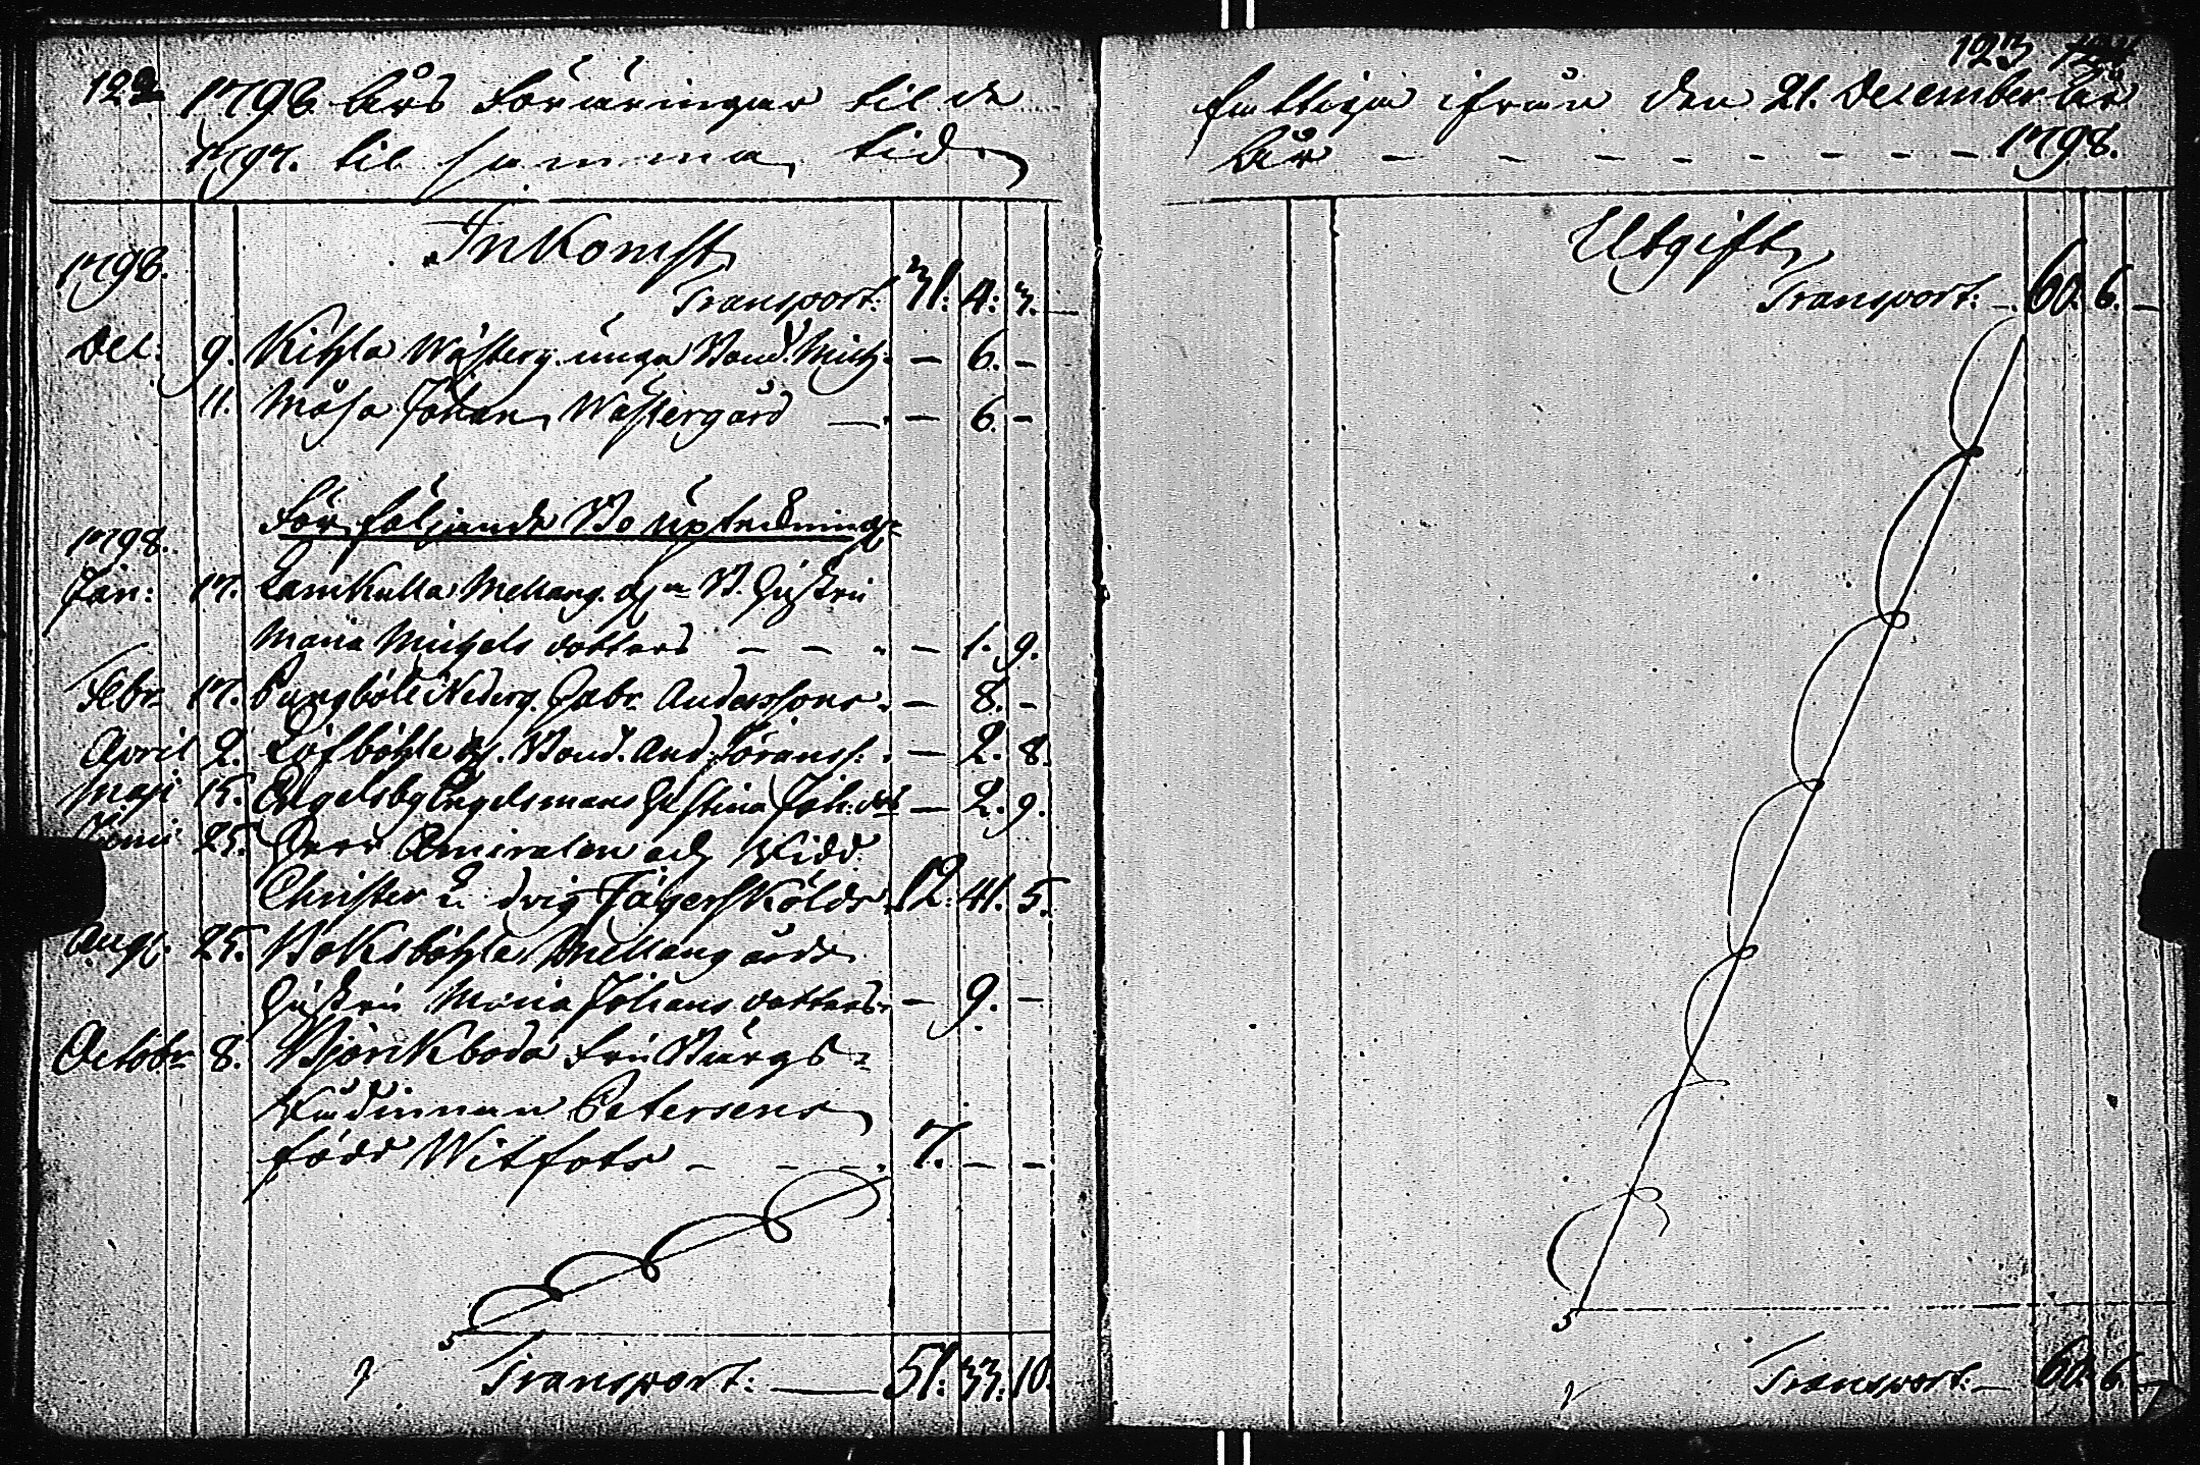 122
1798 Års Föräringar til de
1797. til samma tid
Inkomst
1798.
Transport: 31. 4. 3.
Dec: 9. Kihla Wästerg. unga Bond. Mich. — 6. —
11. Måsa Johan Wästergård — — 6. —
För följande Bo Upteckning:
1798.
Jan: 17. Lamkulla Mellang. B. Hustru
Maria Michels dotters — — — 1. 9.
Febr. 17. Pungböle Nederg. Gabr. Anderssons — 8. —
April 2. Löfböhle Bond. And. Göranss: — 2. 8.
Maji 15. Engelsby Engelsmans Christina Joh: dr — 2. 9.
Junii 25. Herr Amiralen och Ridd.
Christer Ludvig Jägerskölds 12. 41. 5.
Aug. 25. Boksböhle Mellangårds
Hustru Maria Johans dotters — 9. —
Octobr. 8. Björkboda Fru Bärgs-
Rådinnan Petersens
född Witfots — — — 7. — —
Transport: — 51. 33. 10.
123
fattiga ifrån den 21. December År
År — — — — — — — — 1798.
Utgift
Transport: — 60. 6. —
Transport: — 60. 6. —